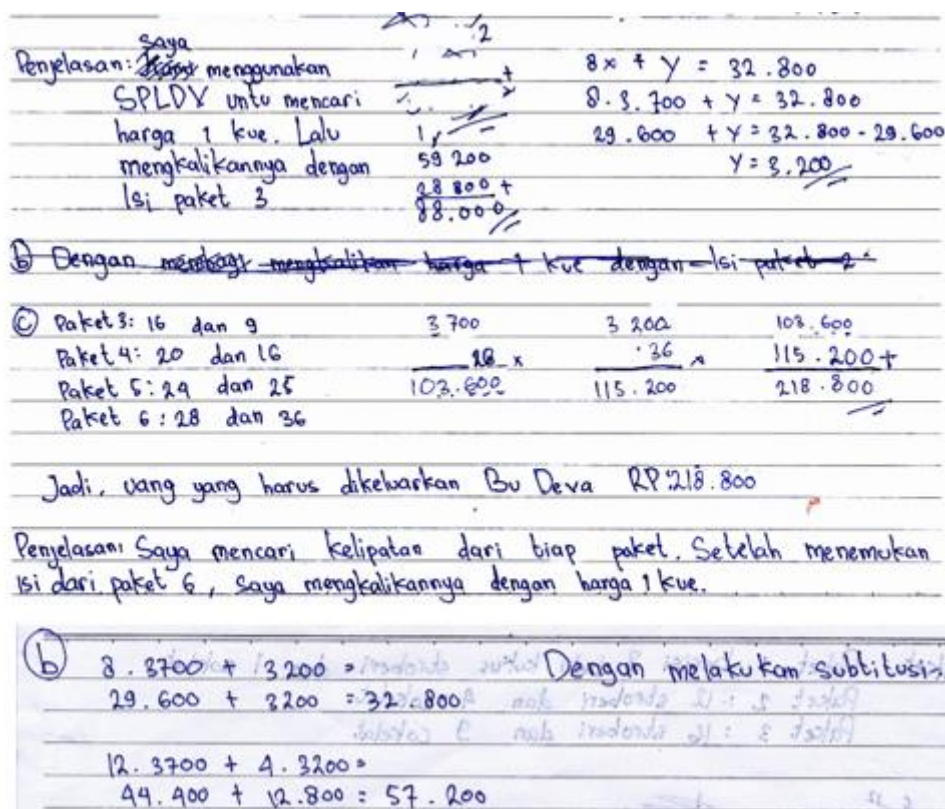 Penjelasan: Saya menggunakan
SPLDV untu mencari
harga 1 kue. Lalu
mengkalikannya dengan
Isi paket 3
2
+
1
59 200
28 800 +
88.000
8x + y = 32.800
8.3.700 + y = 32.800
29.600 + y = 32.800 - 29.600
y = 3.200
(b) Dengan membagi mengkalikan harga 1 kue dengan Isi paket 2
(c) Paket 3: 16 dan 9
Paket 4: 20 dan 16
Paket 5: 24 dan 25
Paket 6: 28 dan 36
3 700
28 x
103.600
3 200
36 x
115.200
103.600
115.200+
218.800
Jadi, uang yang harus dikeluarkan Bu Deva RP 218.800
Penjelasan: Saya mencari kelipatan dari tiap paket. Setelah menemukan
isi dari paket 6, Saya mengkalikannya dengan harga 1 kue.
(b) 8.3700 + 3200 = Dengan melakukan subtitusi
29.600 + 3200 = 32.800
12.3700 + 4.3200=
44.400 + 12.800 = 57.200